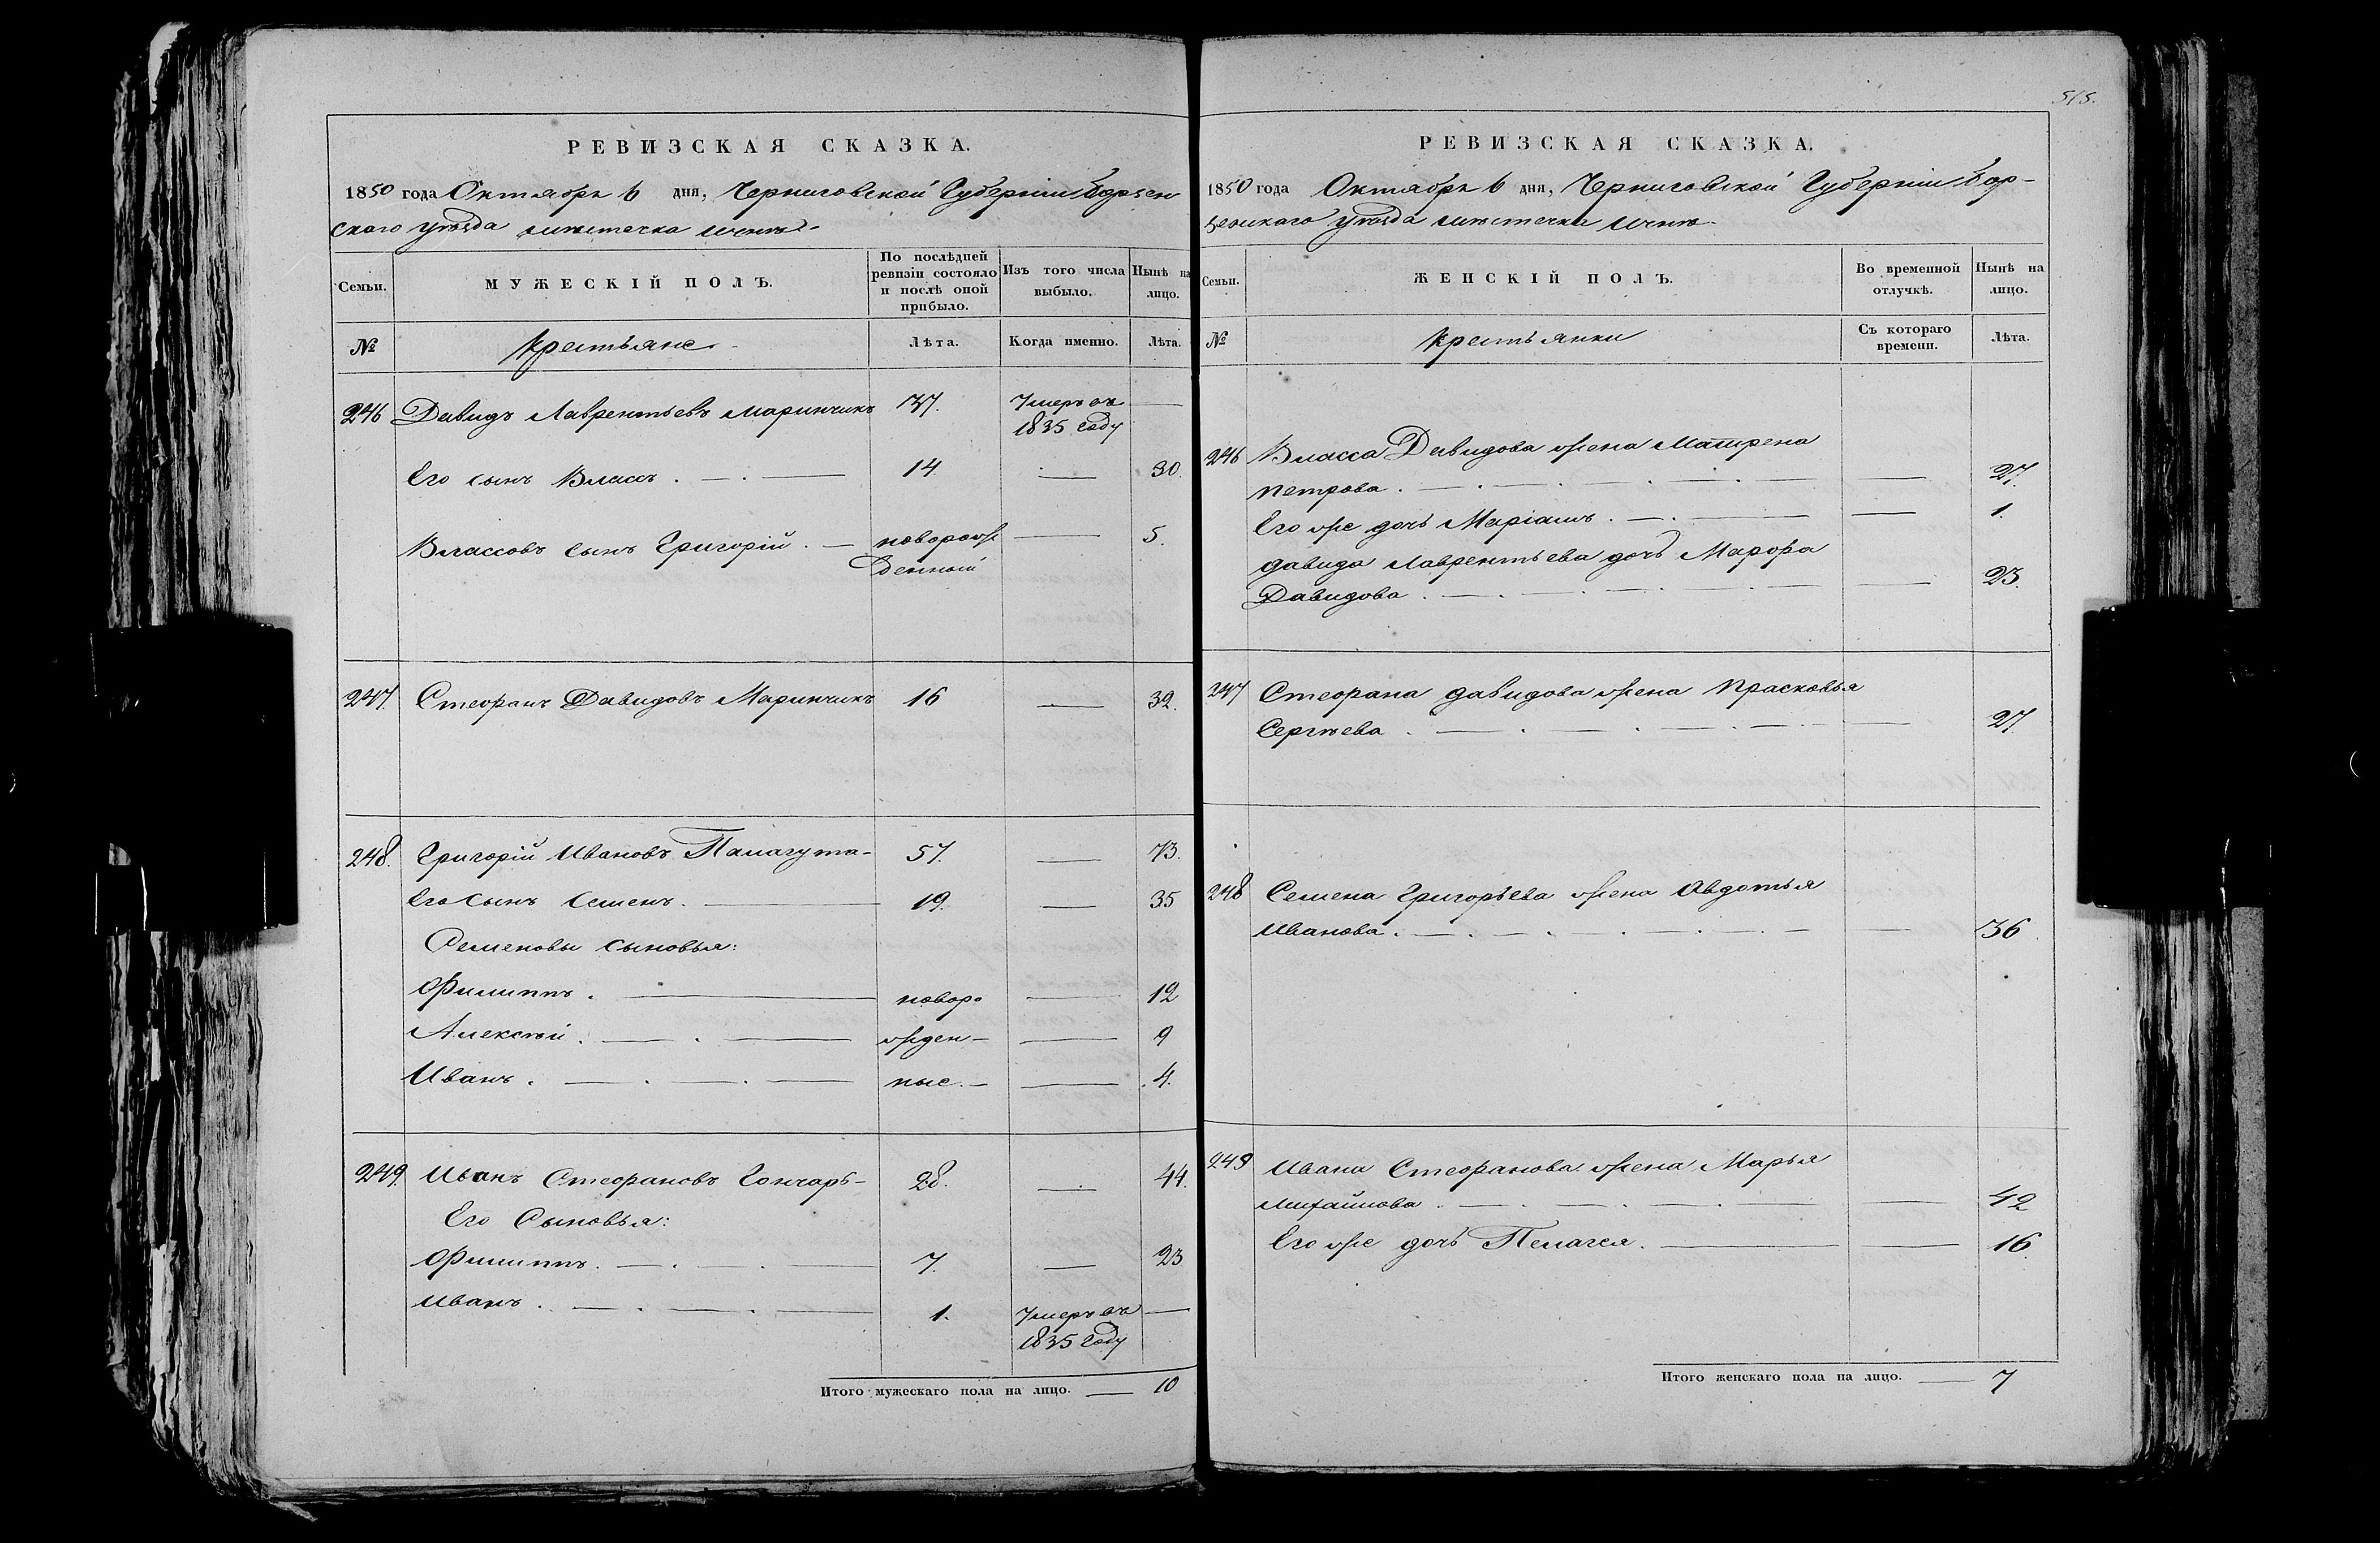 РЕВИЗСКАЯ СКАЗКА.
1850 года Октября 6 дня, Черниговской Губерніи Борзен
скаго уѣзда мѣстечка Ични
Семьи.
МУЖЕСКІЙ ПОЛЪ.
По послѣдней
ревизіи состояло
и послѣ оной
прибыло.
Изъ того числа
выбыло.
Нынѣ на
лицо.
№
Крестьяне
Лѣта.
Когда именно.
Лѣта.
246 Давидъ Лаврентьевъ Маринчикъ 37. Умеръ въ
1835 году
Его сынъ Власъ. 14. 30.
Влассовъ сынъ Григорій. новорож 5.
денный
247. Стефанъ Давидовъ Маринчикъ 16 32.
248. Григорій Ивановъ Палагута 57. 73.
Его сынъ Семенъ. 19. 35
Семеновы сыновья:
Филиппъ. новоро 12
Алексѣй. жден- 9
Иванъ. ные.- 4.
249. Иванъ Стефановъ Гончаръ 28. 44.
Его Сыновья:
Филиппъ. 7. 23
Иванъ. 1. Умеръ въ
1835 году
Итого мужескаго пола на лицо. 10
515.
РЕВИЗСКАЯ СКАЗКА.
1850 года Октября 6 дня, Черниговской Губерніи Бор-
зенскаго уѣзда мѣстечка Ични
Семьи.
ЖЕНСКІЙ ПОЛЪ.
Во временной
отлучкѣ.
Нынѣ на
лицо.
№
Крестьянки
Съ котораго
времени.
Лѣта.
246 Власса Давидова жена Матрена
Петрова. 27.
Его же дочь Маріамъ. 1.
Давида Лаврентьева дочь Марфа
Давидова. 23.
247 Стефана Давидова жена Прасковья
Сергѣева. 27.
248 Семена Григорьева жена Авдотья
Иванова. 36.
249 Ивана Стефанова жена Марья
Михайлова. 42
Его же дочь Пелагея. 16.
Итого женскаго пола на лицо. 7